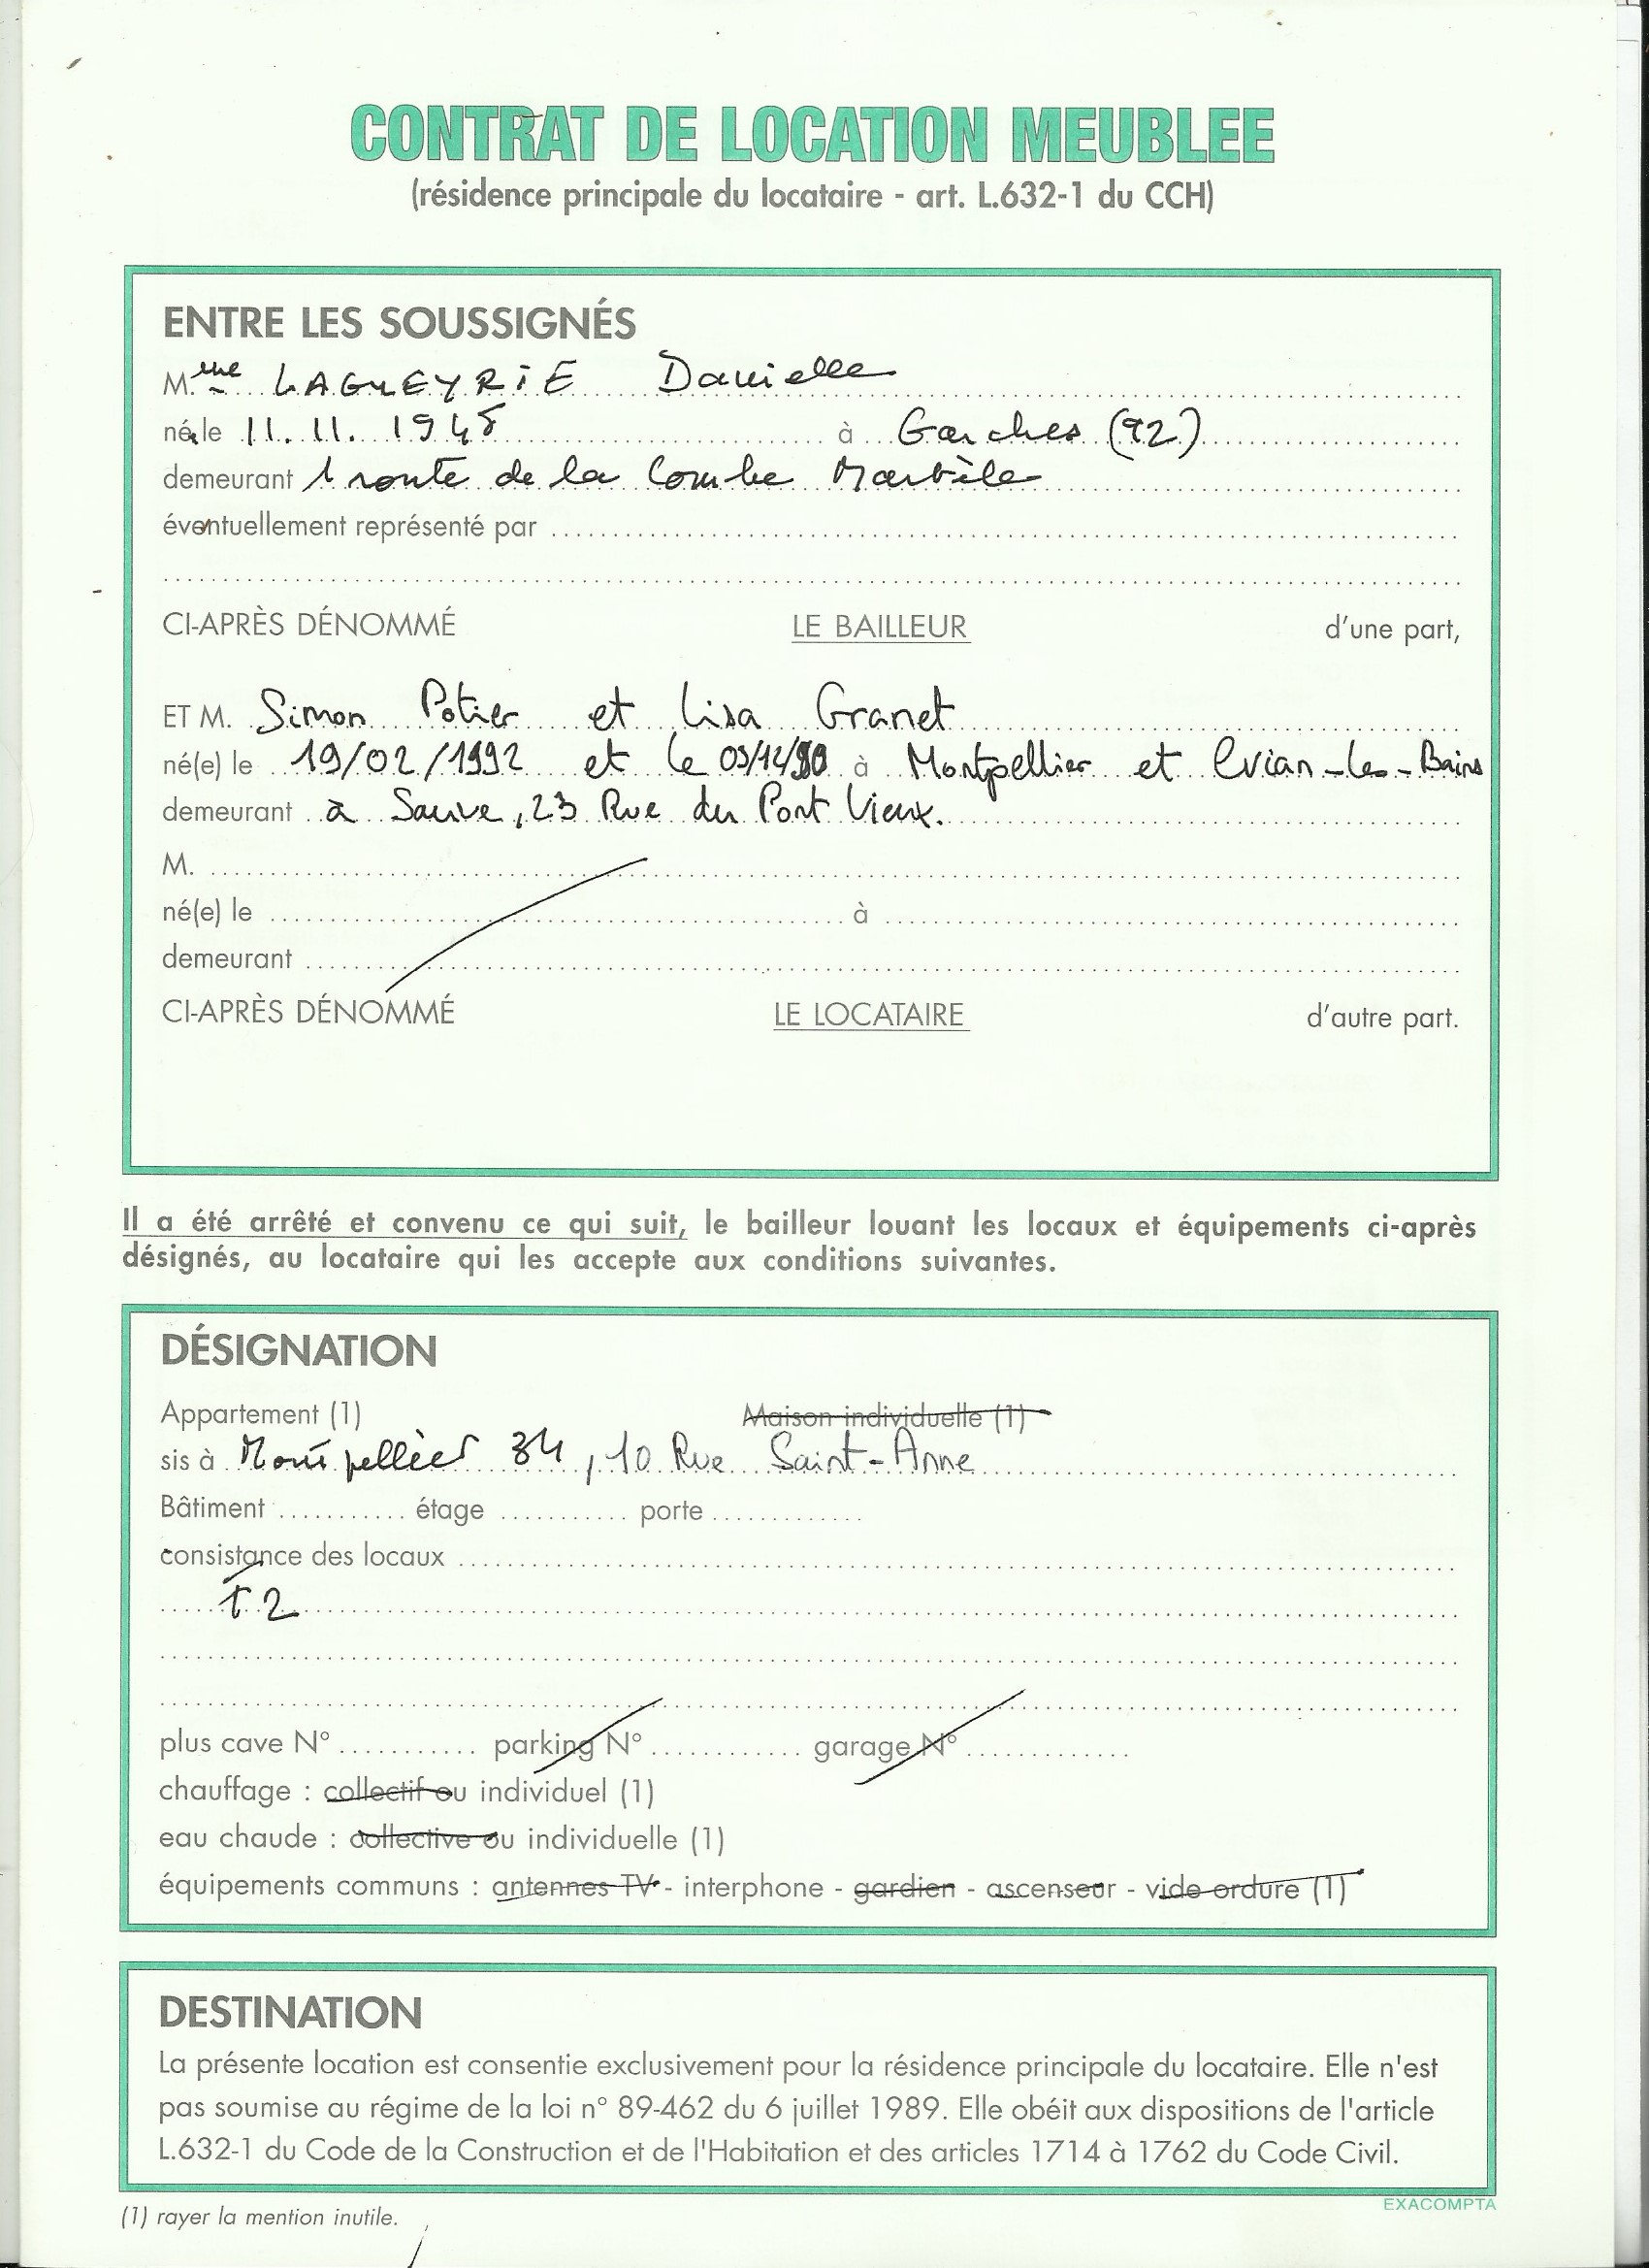 CONTRAT DE LOCATION MEUBLEE
(résidence principale du locataire - art. L.632-1 du CCH)
ENTRE LES SOUSSIGNÉS
M.me LAGUEYRIE Danielle
née le 11.11.1948 à Garches (92)
demeurant 1 route de la Combe
éventuellement représenté par
CI-APRÈS DÉNOMMÉ LE BAILLEUR d'une part,
ET M. Simon Potier et Lisa Granet
né(e) le 19/02/1992 et le à Montpellier et Evian-les-Bains
demeurant à Sauve, 23 Rue du Pont Vieux.
M.
né(e) le à
demeurant
CI-APRÈS DÉNOMMÉ LE LOCATAIRE d'autre part.
Il a été arrêté et convenu ce qui suit, le bailleur louant les locaux et équipements ci-après
désignés, au locataire qui les accepte aux conditions suivantes.
DÉSIGNATION
Appartement (1) Maison individuelle (1)
sis à Montpellier 34, 10 Rue Saint-Anne
Bâtiment étage porte
consistance des locaux
T2
plus cave N° parking N° garage N°
chauffage : collectif ou individuel (1)
eau chaude : collective ou individuelle (1)
équipements communs : antennes TV - interphone - gardien - ascenseur - vide ordure (1)
DESTINATION
La présente location est consentie exclusivement pour la résidence principale du locataire. Elle n'est
pas soumise au régime de la loi n° 89-462 du 6 juillet 1989. Elle obéit aux dispositions de l'article
L.632-1 du Code de la Construction et de l'Habitation et des articles 1714 à 1762 du Code Civil.
EXACOMPTA
(1) rayer la mention inutile.